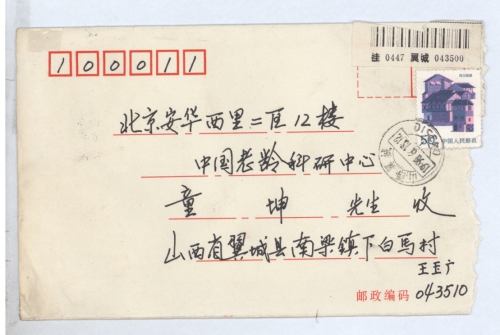 挂 0447 翼城 043500
100011
北京安华西里二区12楼
中国老龄科研中心
童坤先生 收
山西省翼城县南梁镇下白马村
王玉广
邮政编码 043510
中国人民邮政